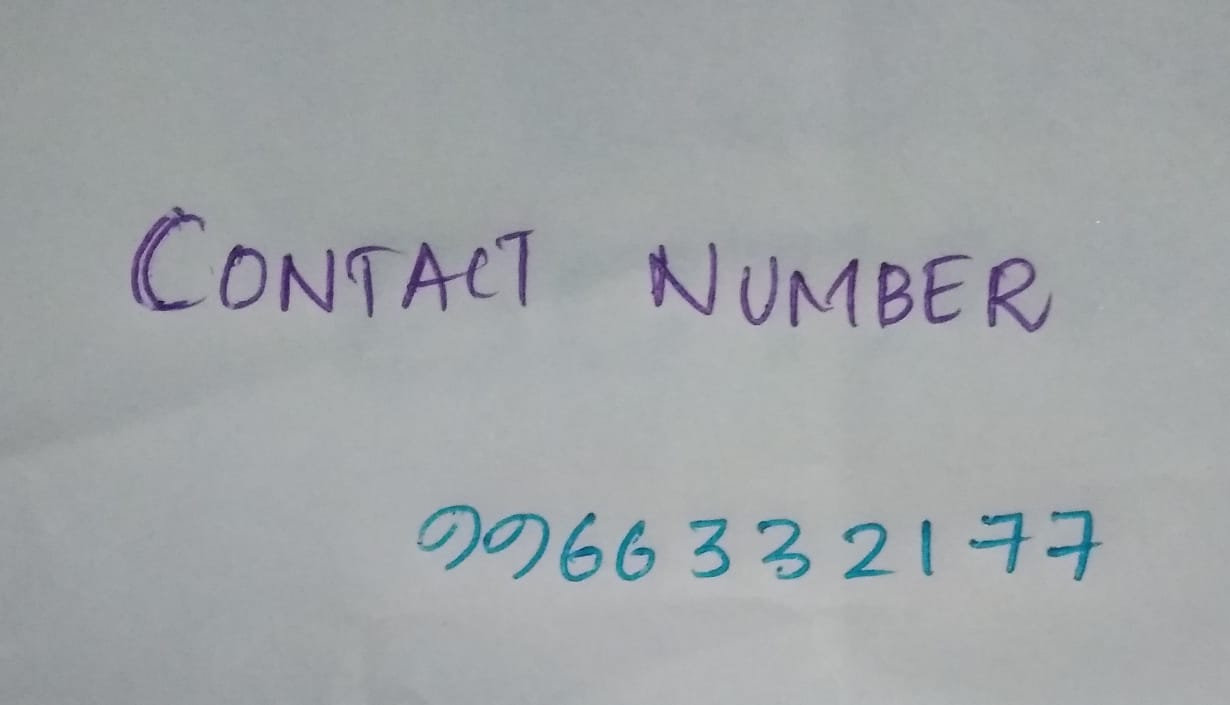 CONTACT NUMBER
9966332177